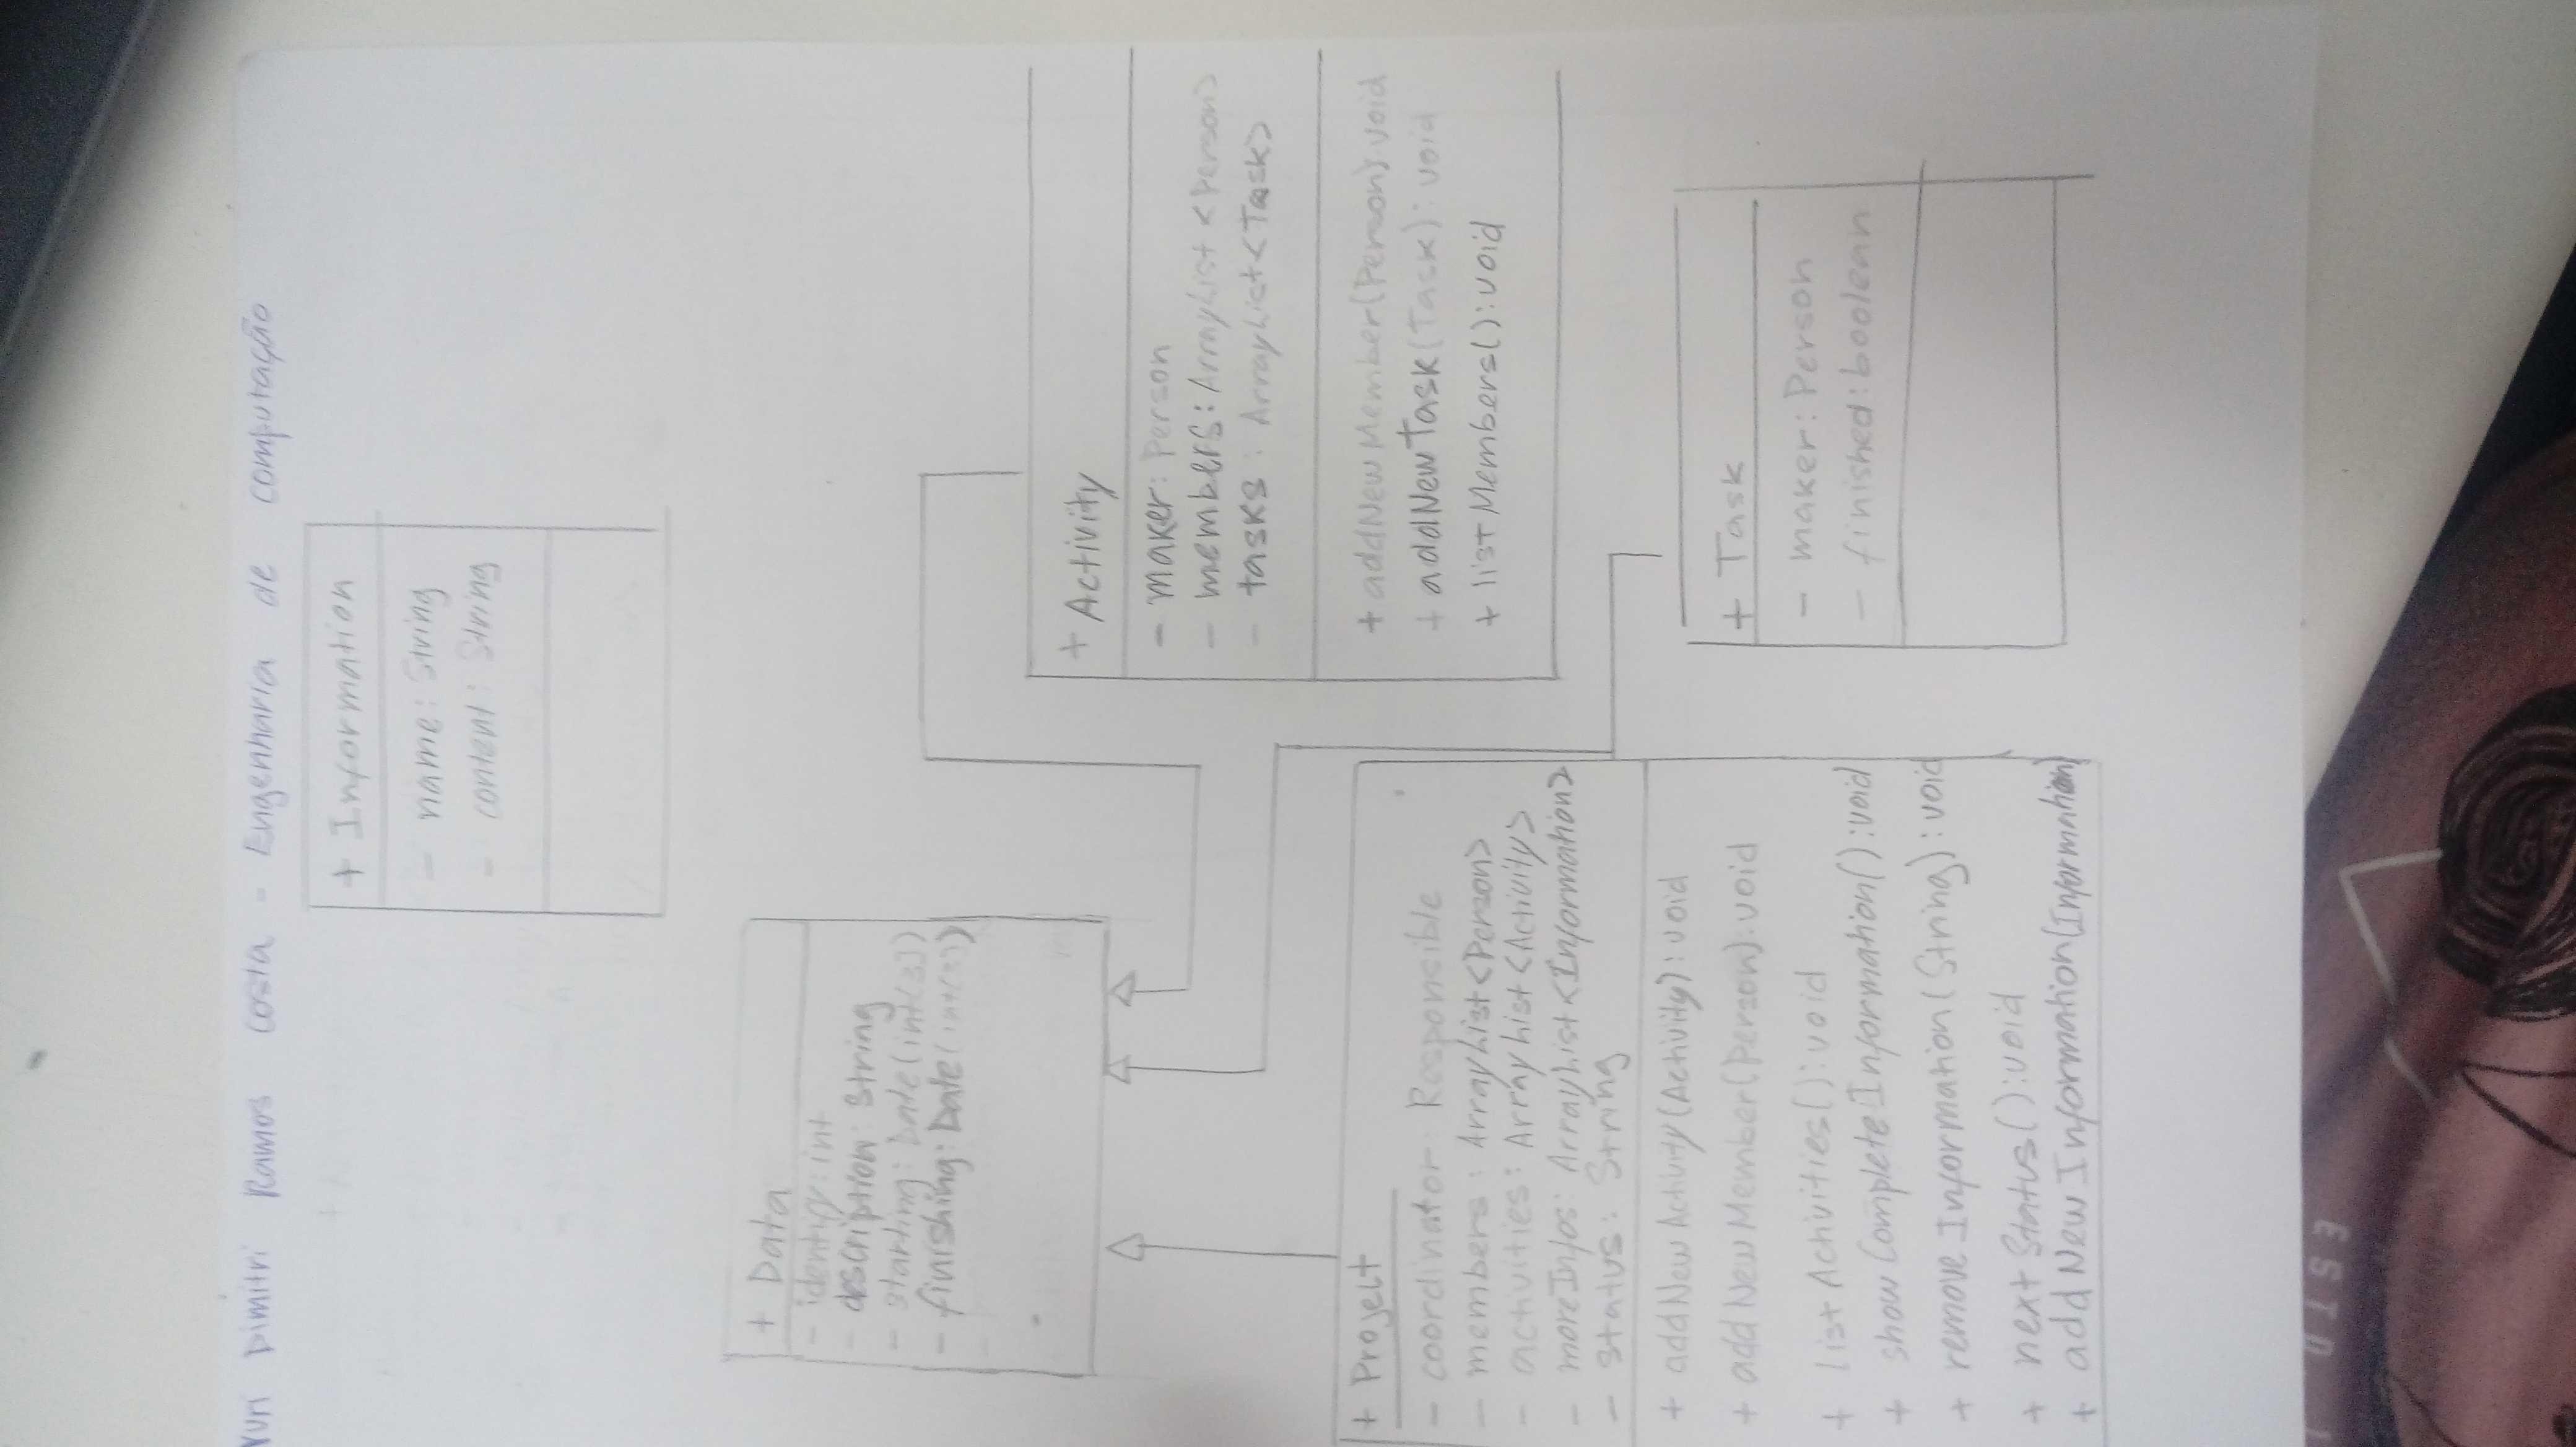 Yuri Dimitri Ramos Costa - Engenharia de computação
+ Information
- name: String
- content: String
+ Data
- identify: int
- description: String
- starting: Date(int[3])
- finishing: Date(int[3])
-
+ Activity
- maker: Person
- members: ArrayList <Person>
- tasks : ArrayList<Task>
+ addNewMember(Person): void
+ addNewTask(Task): void
+ listMembers(): void
+ Project
- coordinator: Responsible
- members: ArrayList<Person>
- activities: ArrayList<Activity>
- moreInfos: ArrayList<Information>
- status: String
+ addNewActivity(Activity): void
+ addNewMember(Person): void
+ listActivities(): void
+ showCompleteInformation(): void
+ removeInformation(String): void
+ nextStatus(): void
+ addNewInformation(Information)
+ Task
- maker: Person
- finished: boolean